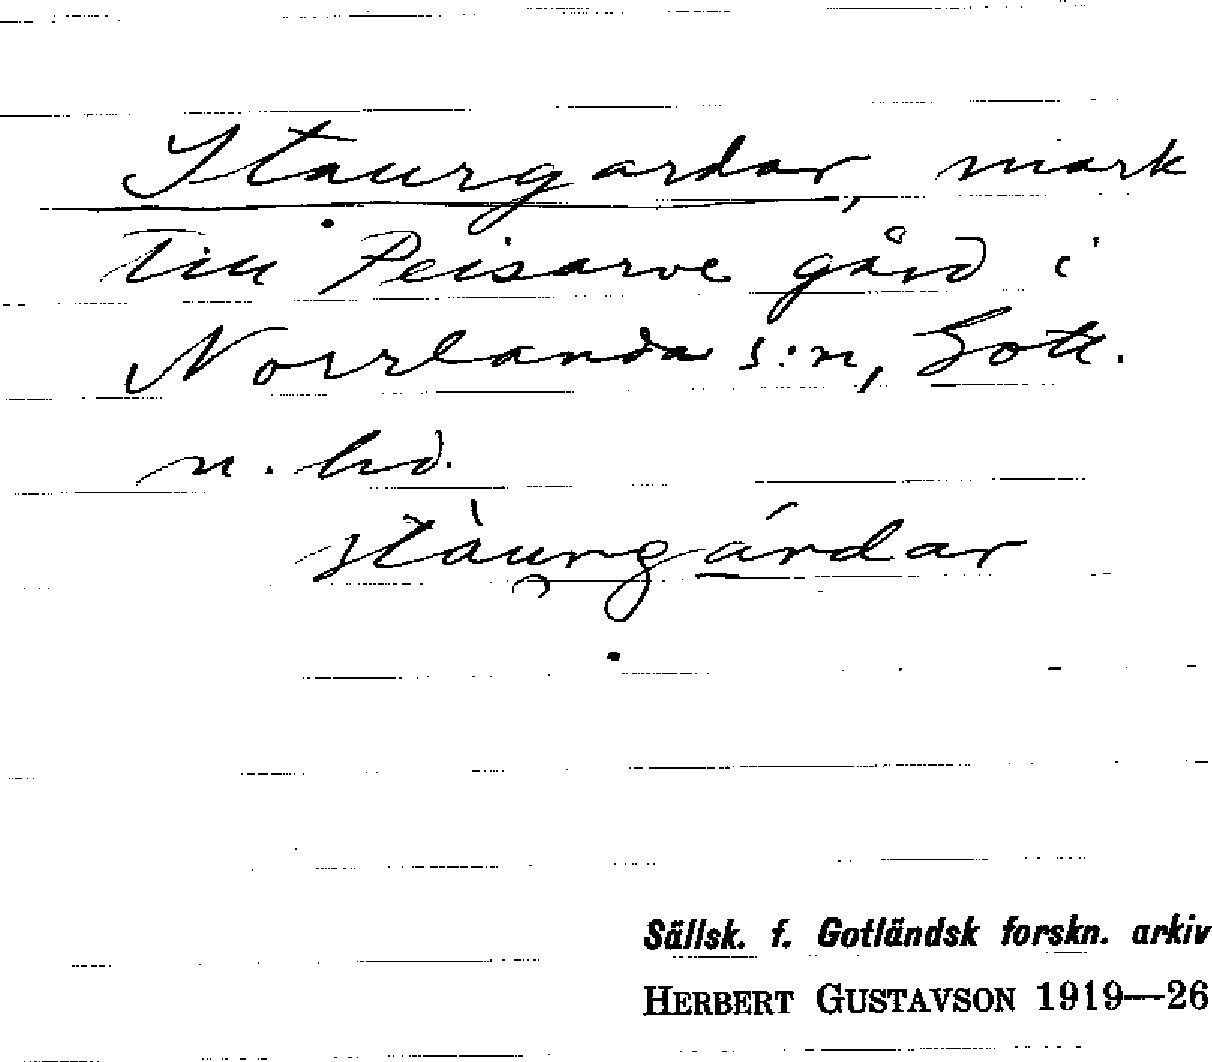 Staurgardar, mark
till Peisarve gård i
Norrlanda s:n, Gotl.
n. hd.
stàu̯rgárdar
Sällsk. f. Gotländsk forskn. arkiv
HERBERT GUSTAVSON 1919—26